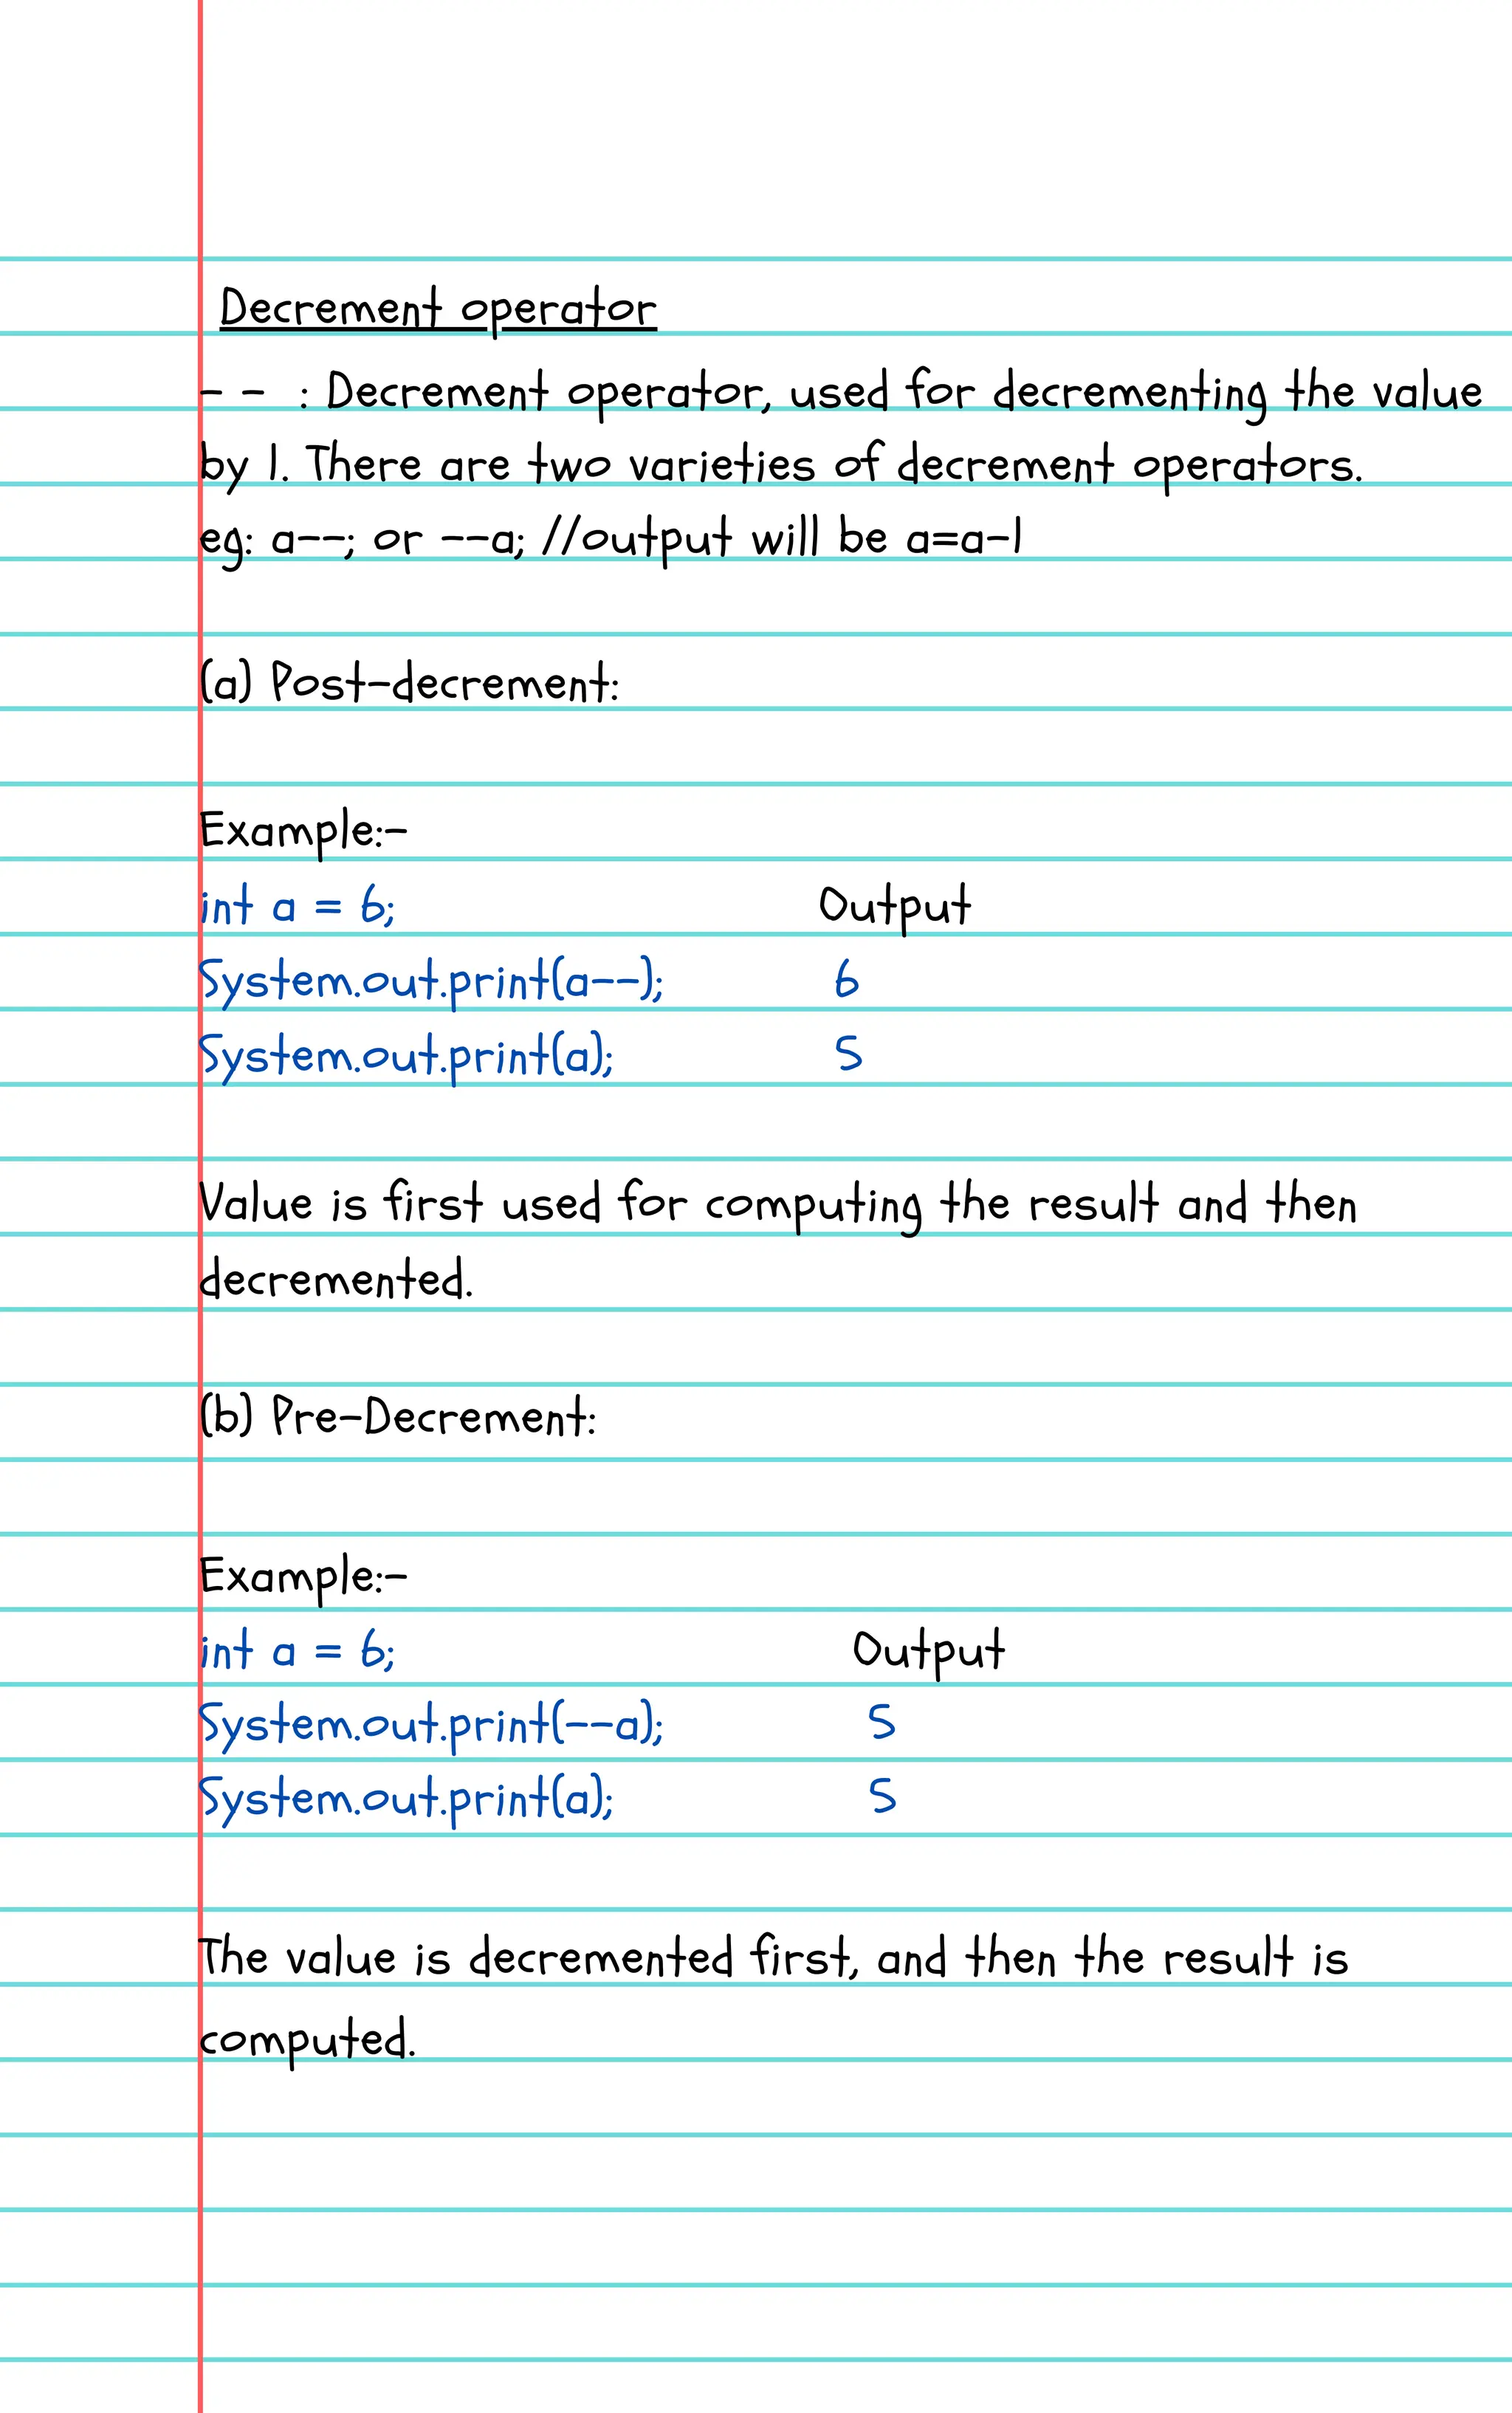 Decrement operator
-- : Decrement operator, used for decrementing the value
by 1. There are two varieties of decrement operators.
eg: a--; or --a; //output will be a=a-1
(a) Post-decrement:
Example:-
int a = 6; Output
System.out.print(a--); 6
System.out.print(a); 5
Value is first used for computing the result and then
decremented.
(b) Pre-Decrement:
Example:-
int a = 6; Output
System.out.print(--a); 5
System.out.print(a); 5
The value is decremented first, and then the result is
computed.